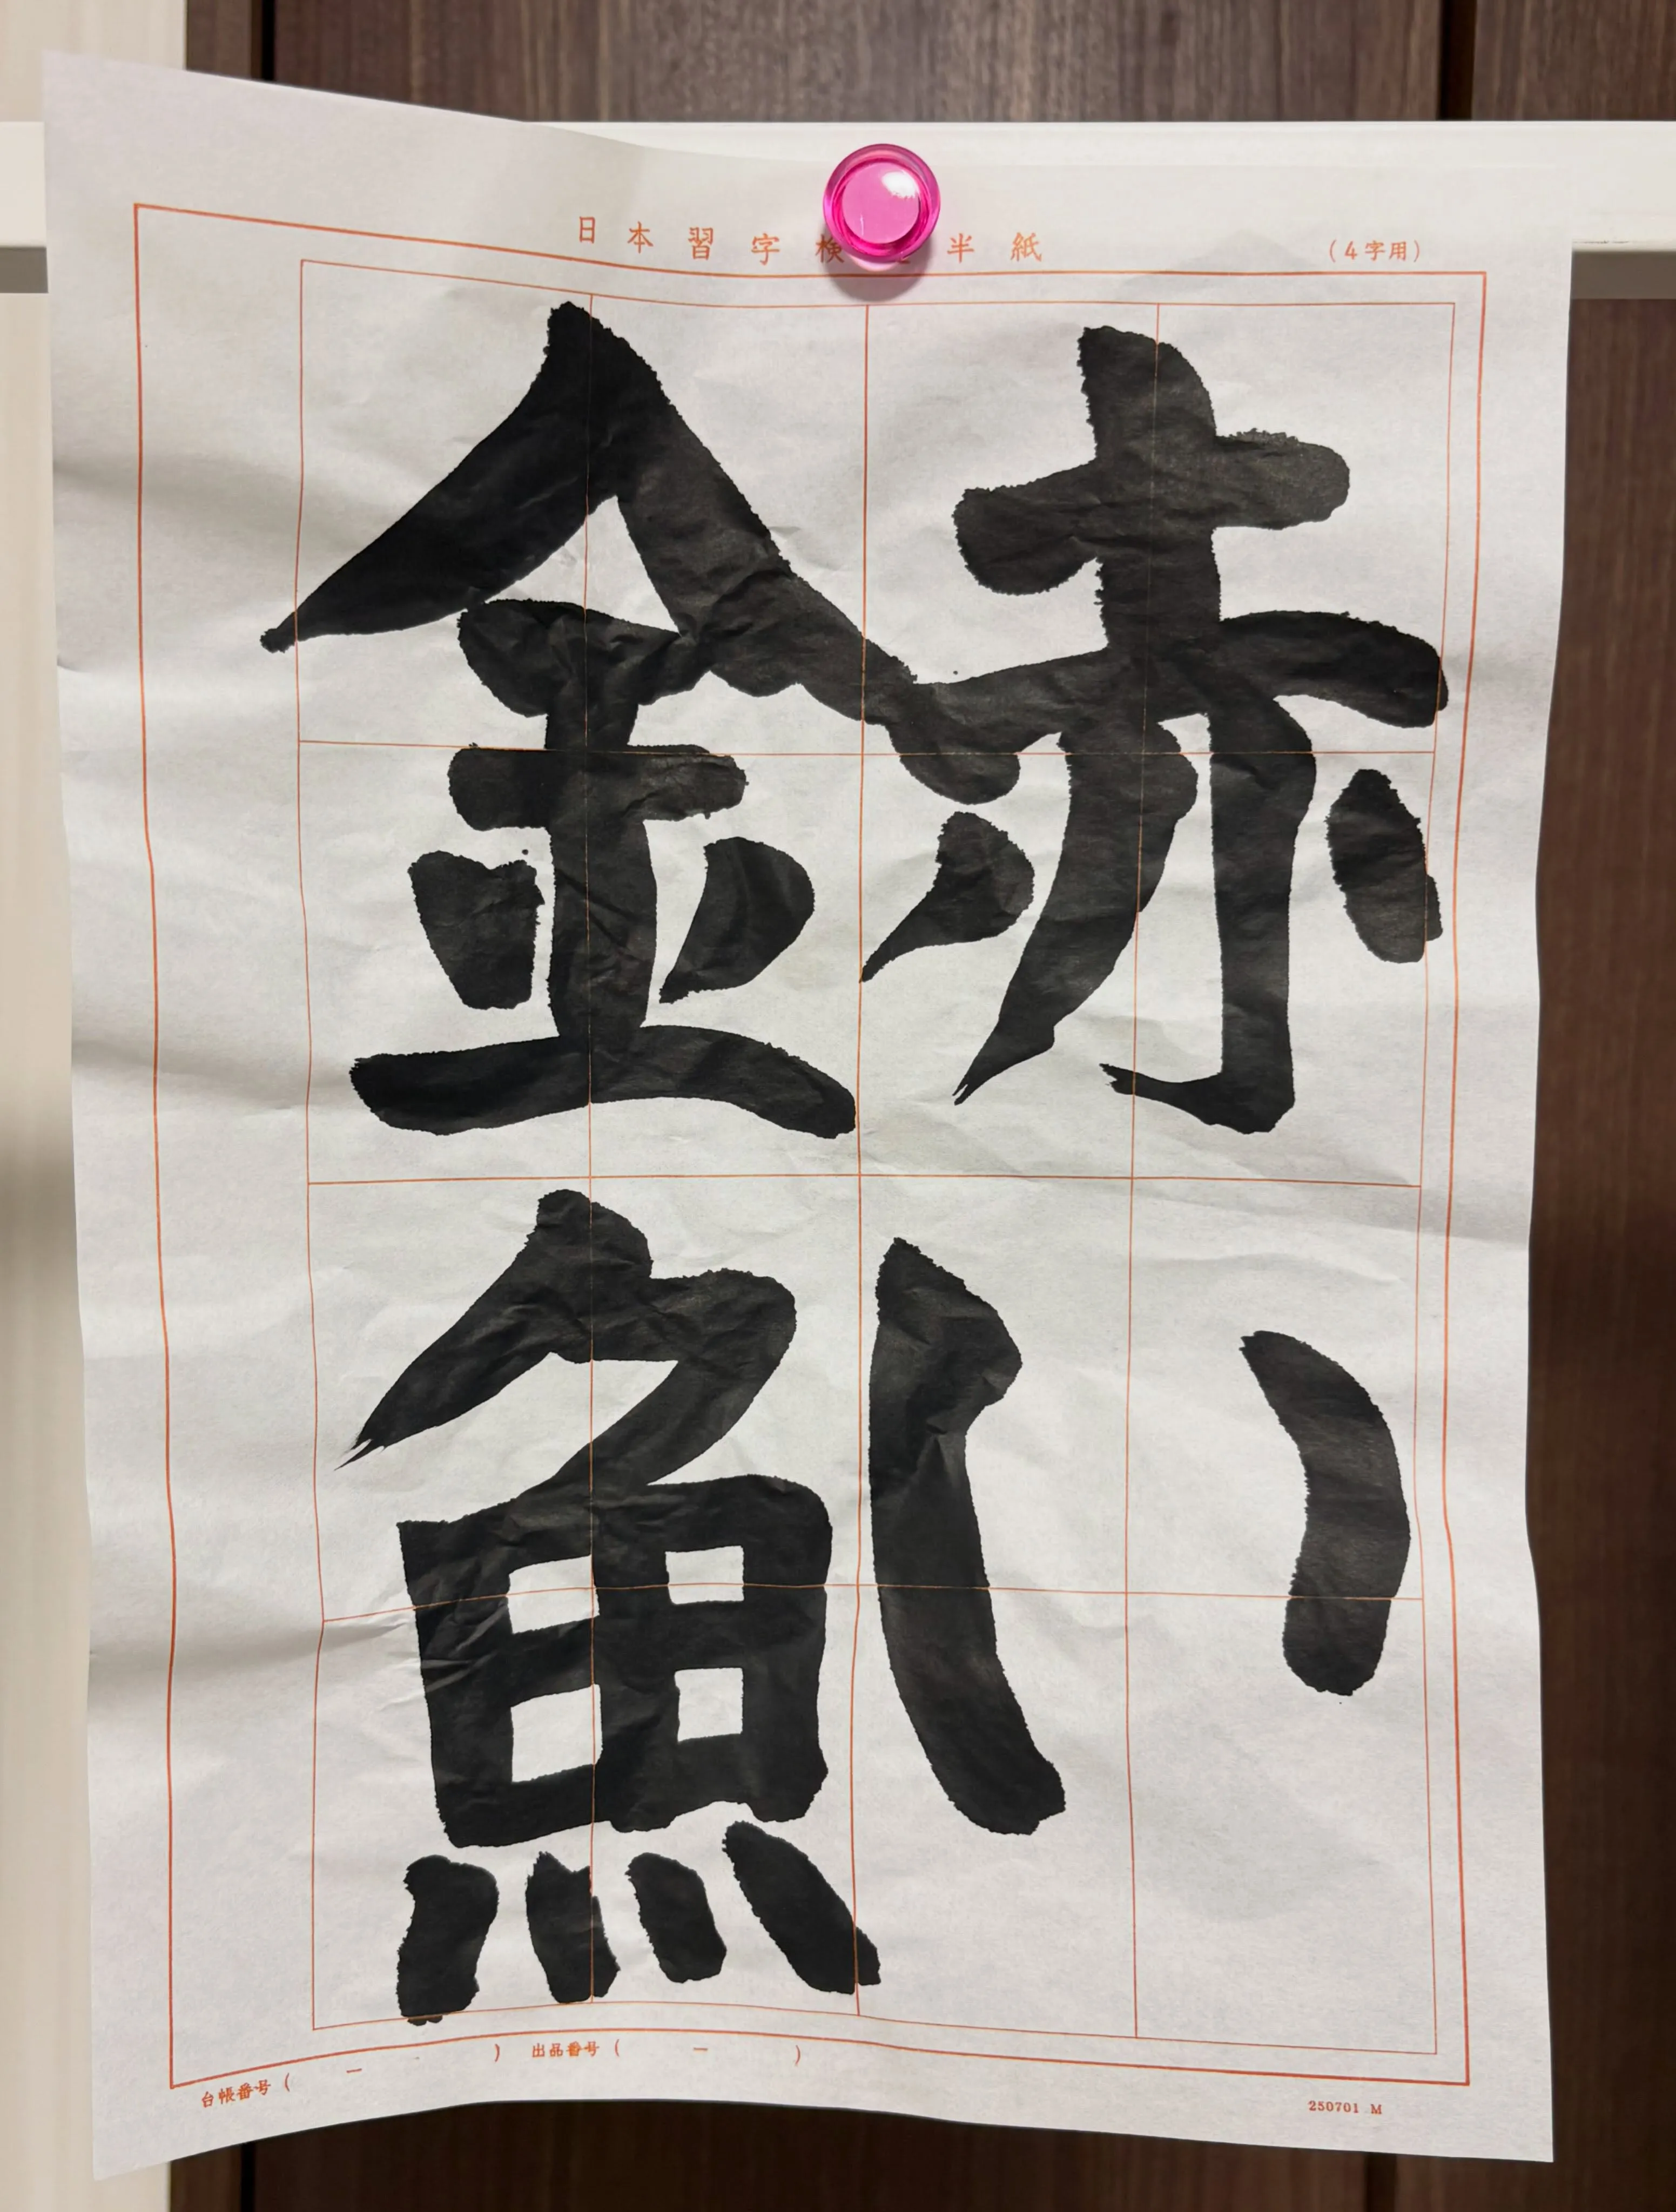 日本習字検　半紙
(4字用)
赤い
金魚
台帳番号(　ー　)　出品番号(　ー　)
250701 M